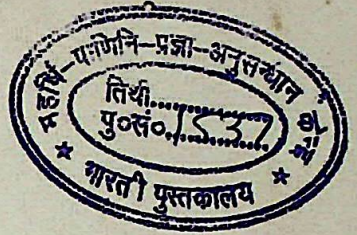 महर्षि-पाणिनि-प्रज्ञा-अनुसन्धान केन्द्र
तिथी..............
पु०सं०.1537
★ भारती पुस्तकालय ★